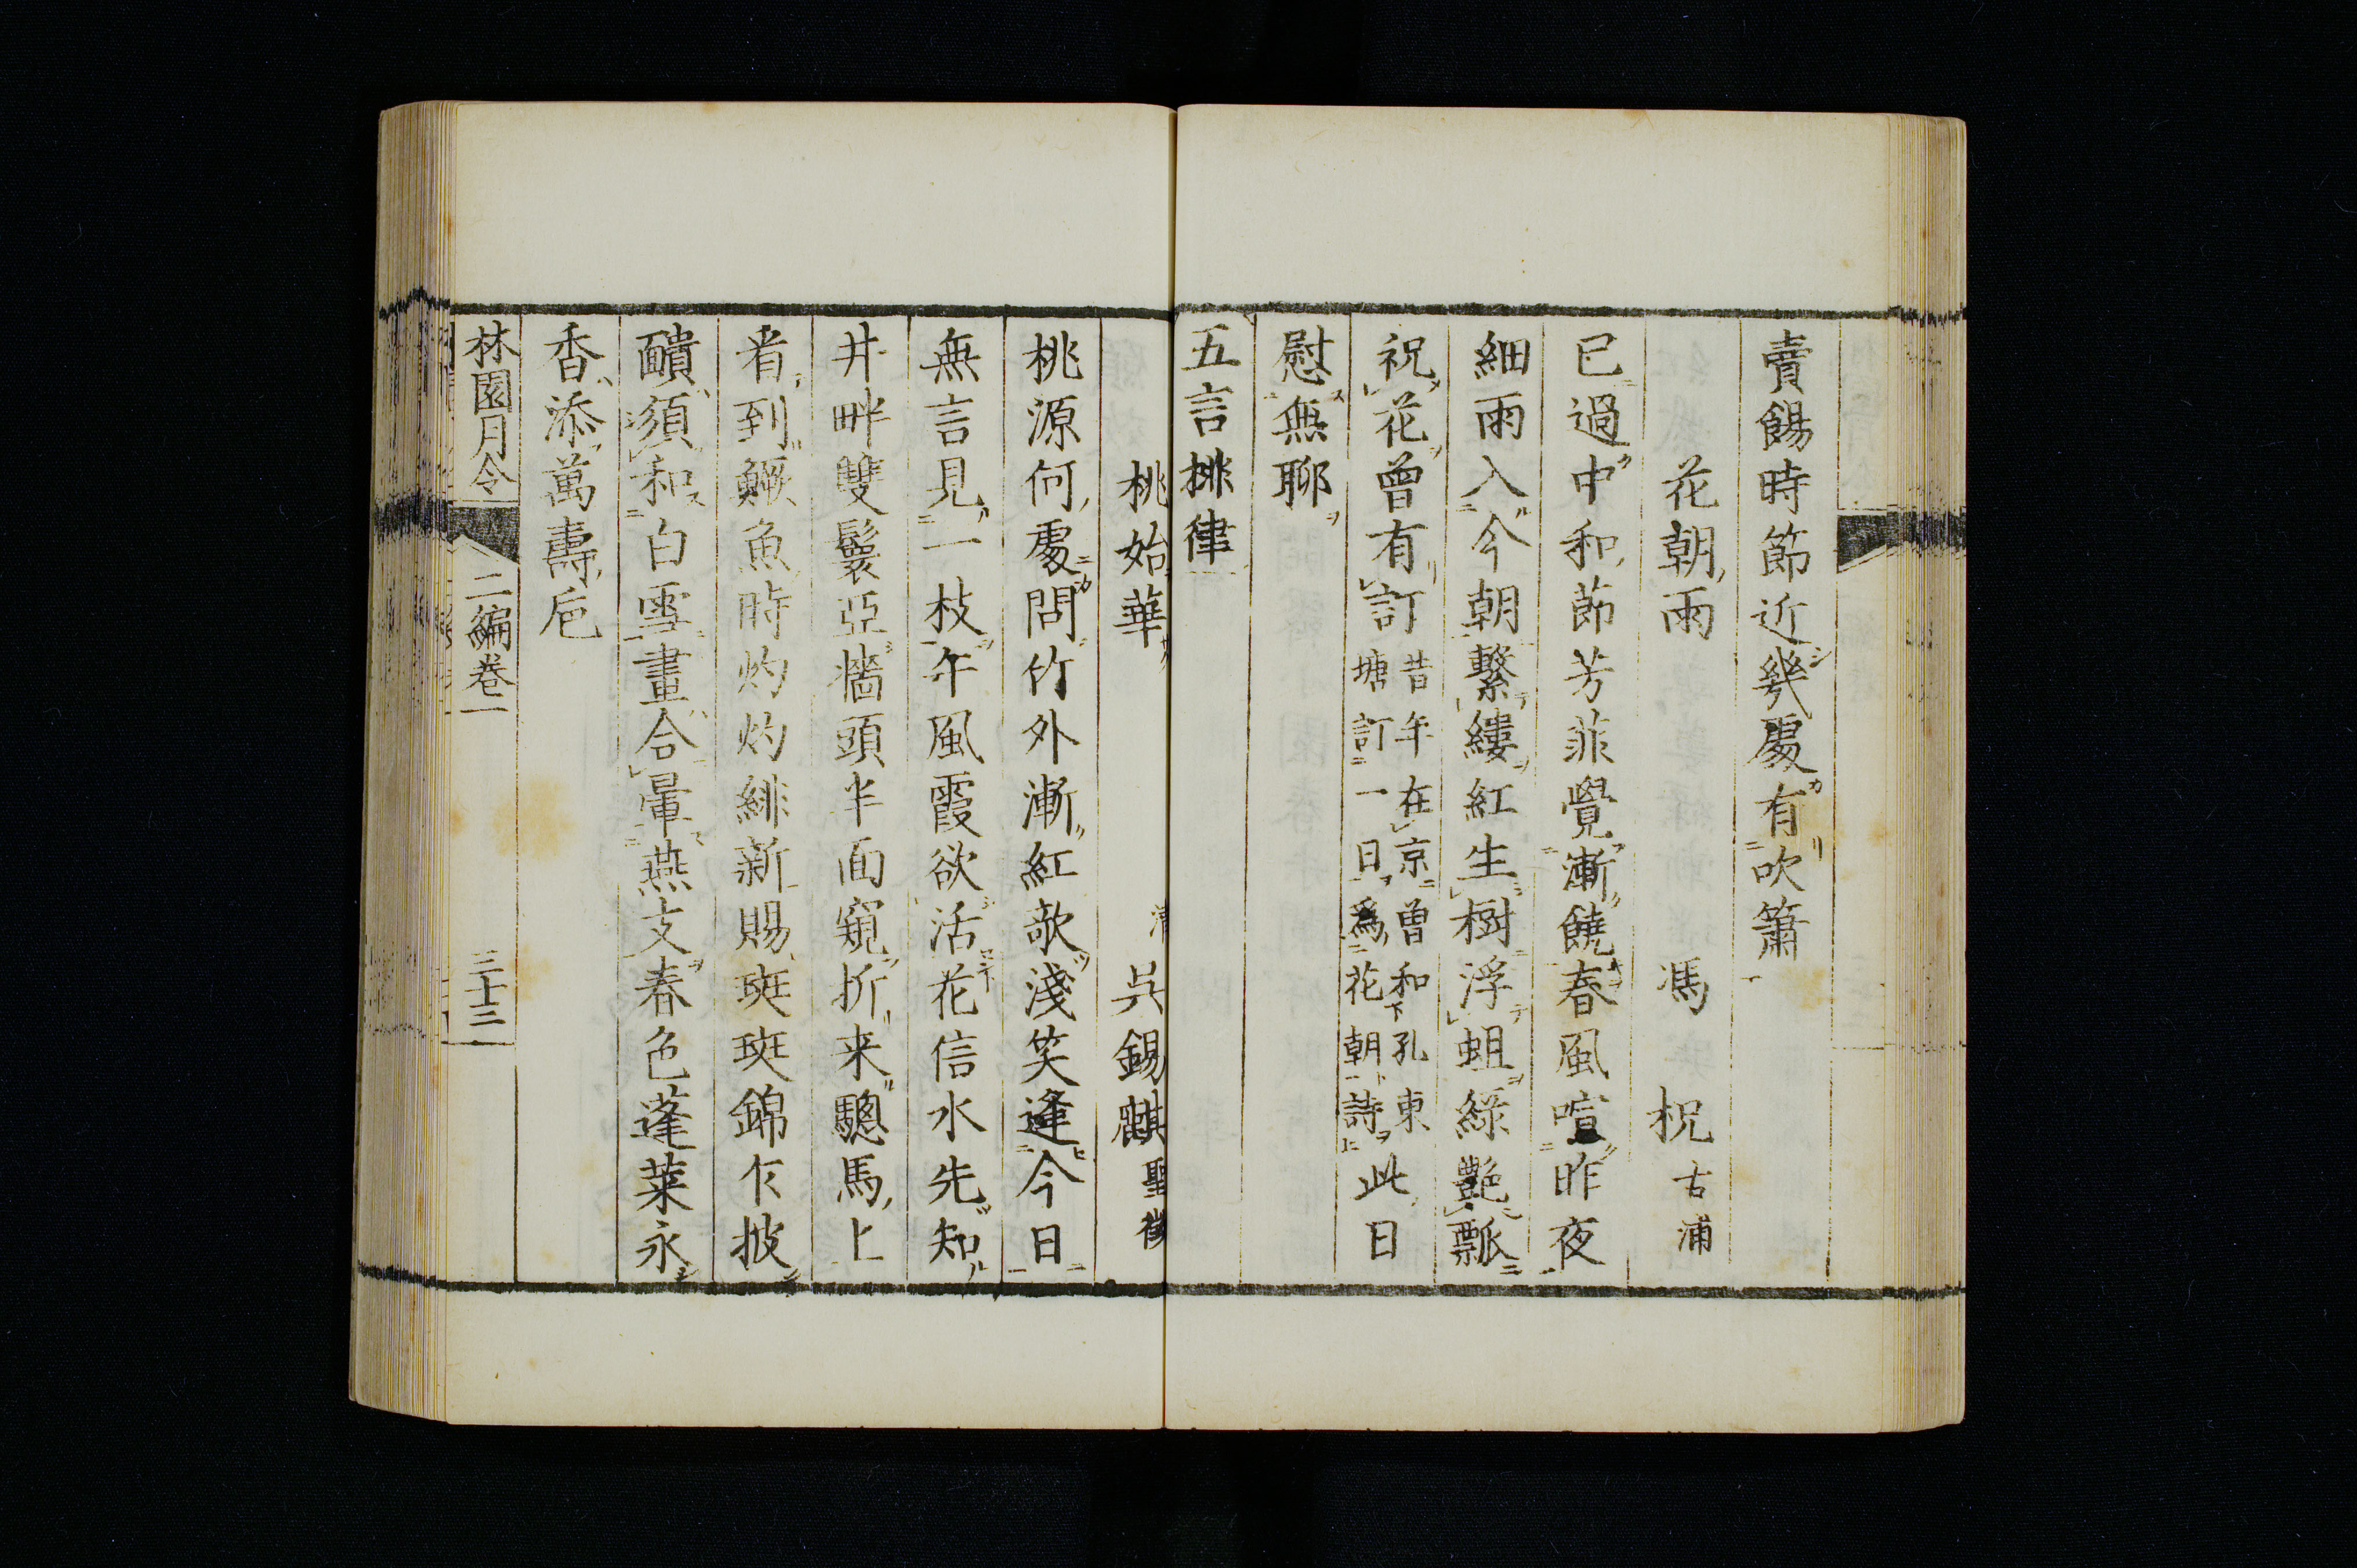 賣餳時節近幾處有吹簫
花朝雨　馮　柷古浦
已過中和節芳菲覺漸饒春風喧昨夜
細雨入今朝繫縷紅生樹浮蛆綠艶瓢
祝花曾有訂昔年在京曾和孔東
塘訂一日爲花朝詩此日
慰無聊
五言排律
桃始華　清　吳錫麒聖徵
桃源何處問竹外漸紅欹淺笑逢今日
無言見一枝午風霞欲活花信水先知
井畔雙鬟亞牆頭半面窺折来驄馬上
看到鱖魚時灼灼緋新賜斑斑錦乍披
靧須和白雪畫合暈燕支春色蓬萊永
香添萬壽巵
林園月令　二編卷一　三十三